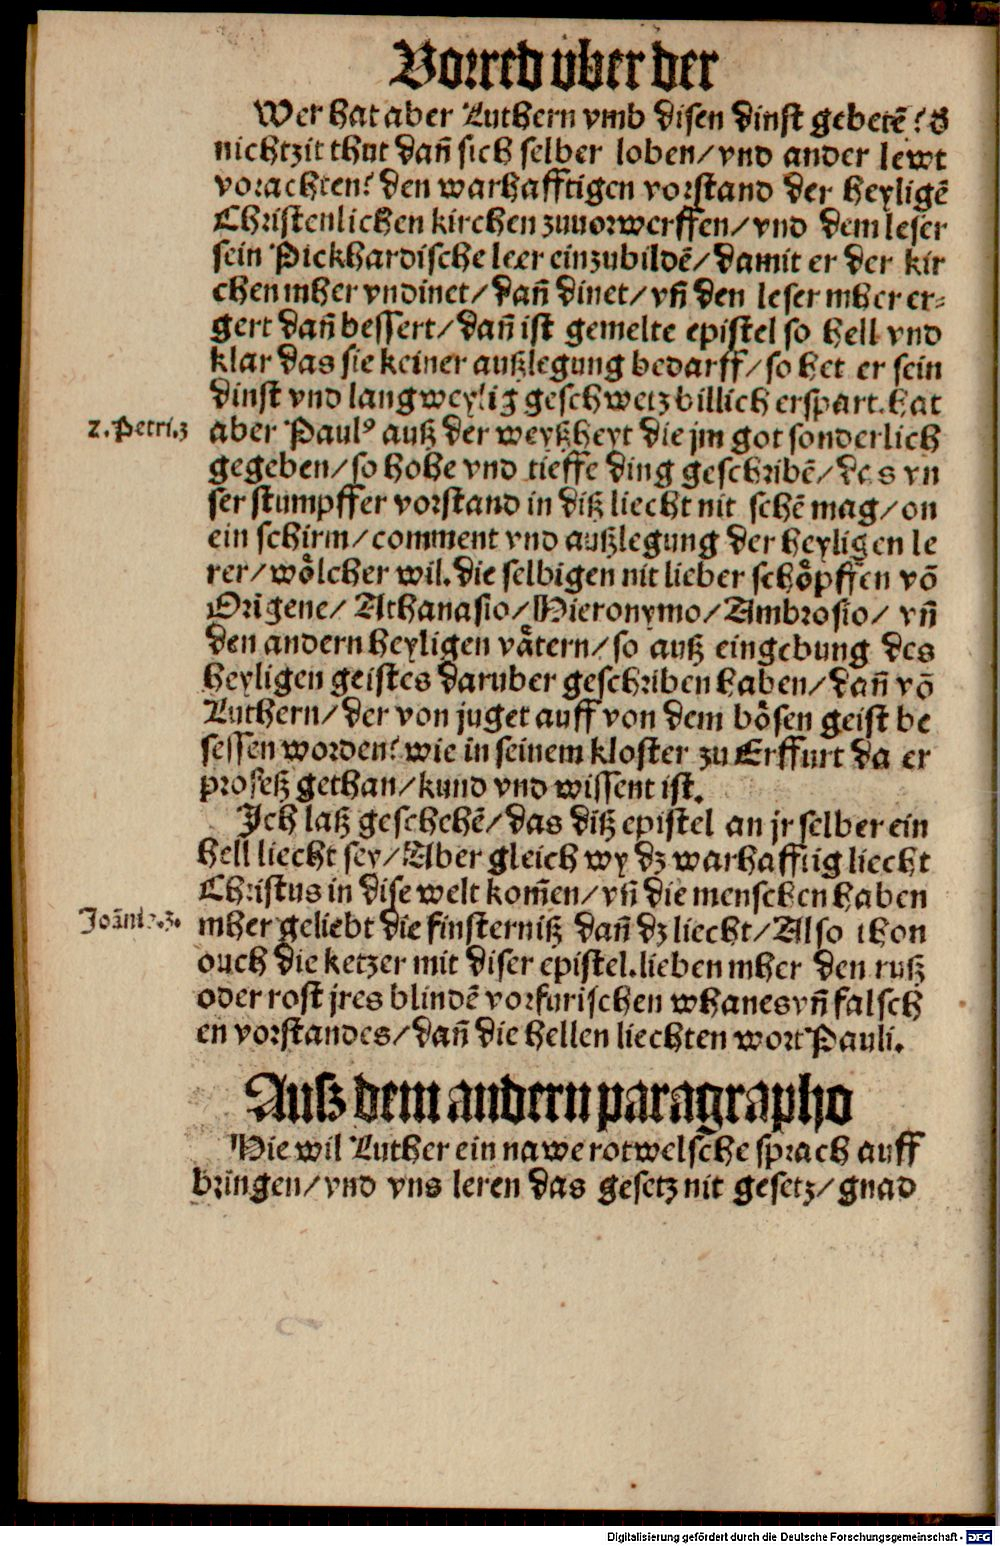 Vorred vber der
Wer hat aber Luthern vmb disen dinst gebetē? d
nichtzit thut dañ sich selber loben/ vnd ander lewt
vorachten? den warhafftigen vorstand der heyligē
Christenlichen kirchen zuuorwerffen/ vnd dem leser
sein Pickhardische leer einzubildē/ damit er der kir
chen mher vndinet/ dañ dinet/ vñ den leser mher er-
gert dañ bessert/ dañ ist gemelte epistel so hell vnd
klar das sie keiner außlegung bedarff/ so het er sein
dinst vnd langweylig geschwetz billich erspart. hat
2. Petri. 3
aber Paulꝰ auß der weyßheyt die jm got sonderlich
gegeben/ so hohe vnd tieffe ding geschribē/ des vn
ser stumpffer vorstand in diß liecht nit sehē mag/ on
ein schirm/ comment vnd außlegung der heyligen le
rer/ woͤlcher wil. die selbigen nit lieber schoͤpffen vō
Origene/ Athanasio/ Hieronymo/ Ambrosio/ vñ
den andern heyligen vaͤtern/ so auß eingebung des
heyligen geistes daruber geschriben haben/ dañ vō
Luthern/ der von juget auff von dem boͤsen geist be
sessen worden? wie in seinem kloster zu Erffurt da er
profeß gethan/ kund vnd wissent ist.
Ich laß geschehē/ das diß epistel an jr selber ein
hell liecht sey/ Aber gleich wy dz warhafftig liecht
Christus in dise welt kom̄en/ vñ die menschen haben
Joānis. 3.
mher geliebt die finsterniß dañ dz liecht/ Also thon
ouch die ketzer mit diser epistel. lieben mher den ruß
oder rost jres blindē vorfurischen whanes vñ falsch
en vorstandes/ dañ die hellen liechten wort Pauli.
Auß dem andern paragrapho
Hie wil Luther ein nawe rotwelsche sprach auff
bringen/ vnd vns leren das gesetz nit gesetz/ gnad
Digitalisierung gefördert durch die Deutsche Forschungsgemeinschaft - DFG